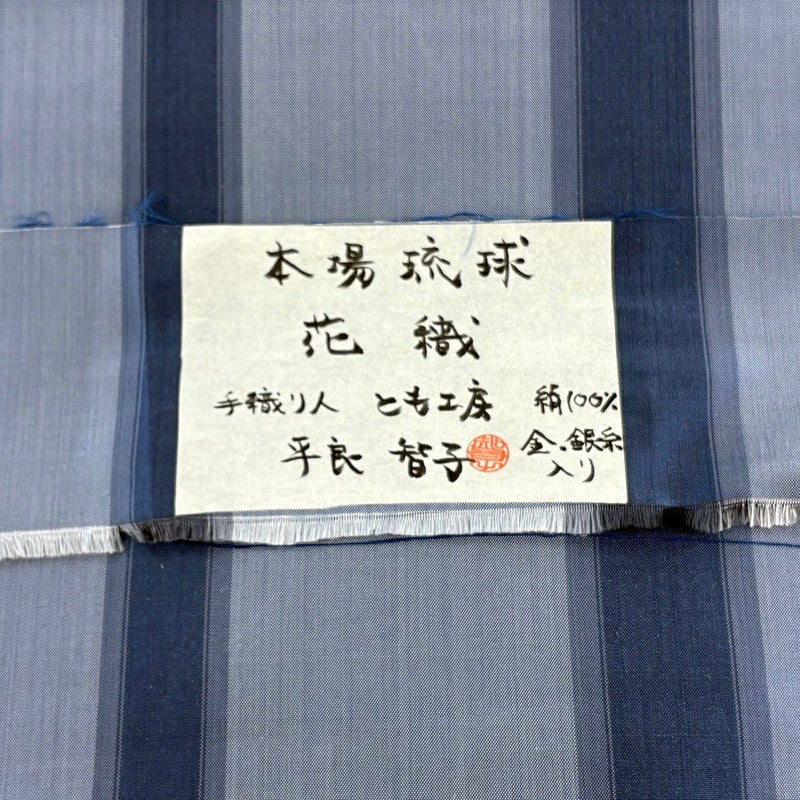 本場琉球
花織
手織り人 とも工房 絹100%
平良 智子 金、銀糸
入り